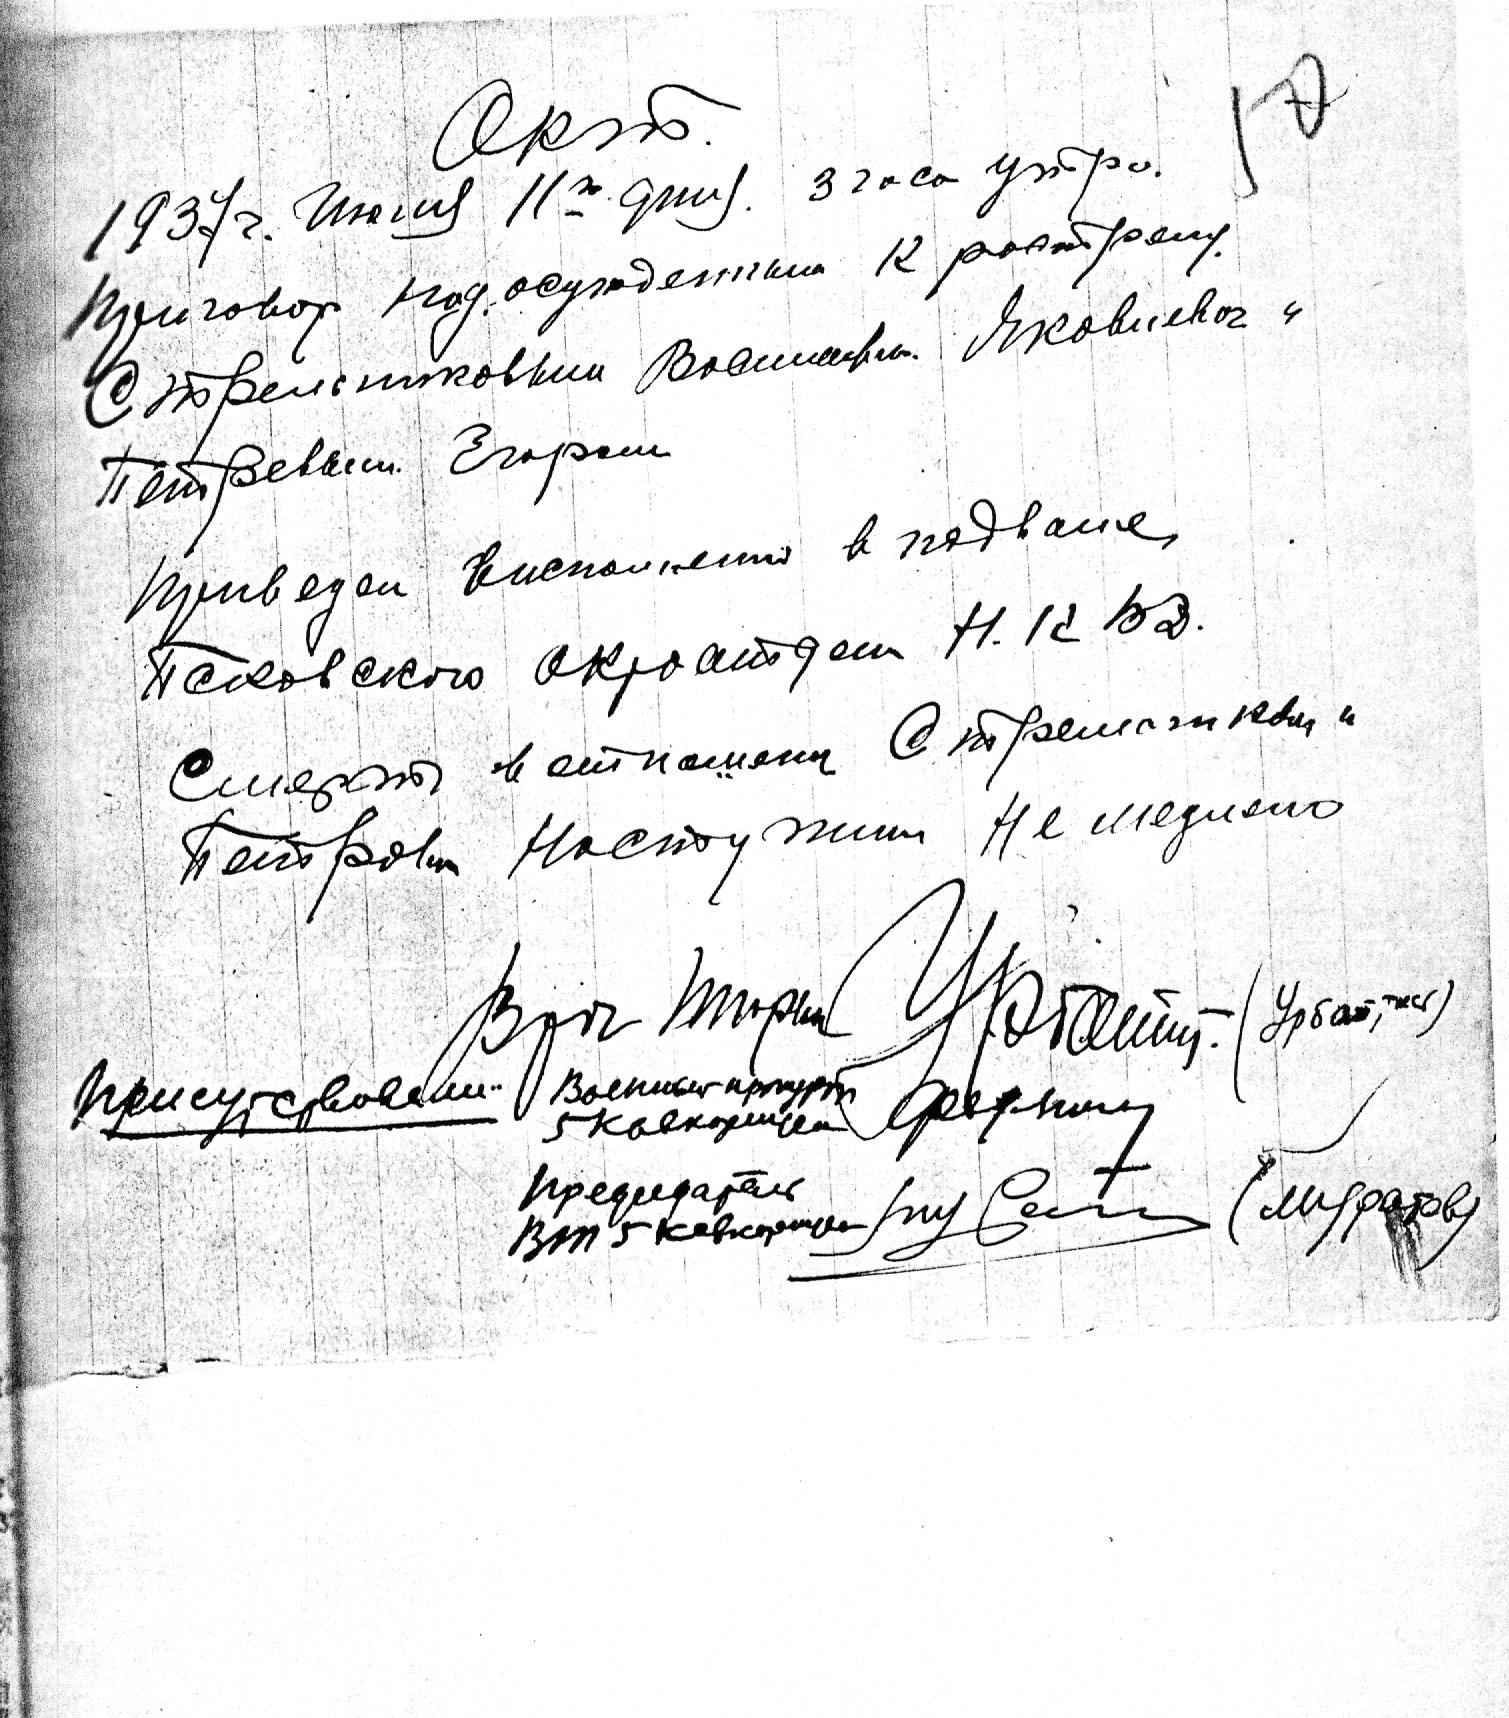 Акт.
17
1937 г. Июля 11го дня. 3 часа утра.
Приговор над осужденными к расстрелу.
Стрельниковым Василием Яковлевич и
Петровым Егором
Приведен висполнению в подвале,
Псковского окротдела Н.К.В.Д.
Смерть в отношении Стрельников и
Петрова Наступила Не медлено
Врач тюрьмы (Урбанит,)
Присутствовали: Военный прокурор
5 Кавкорпуса
Председатель
ВТ 5 Кавкорпуса